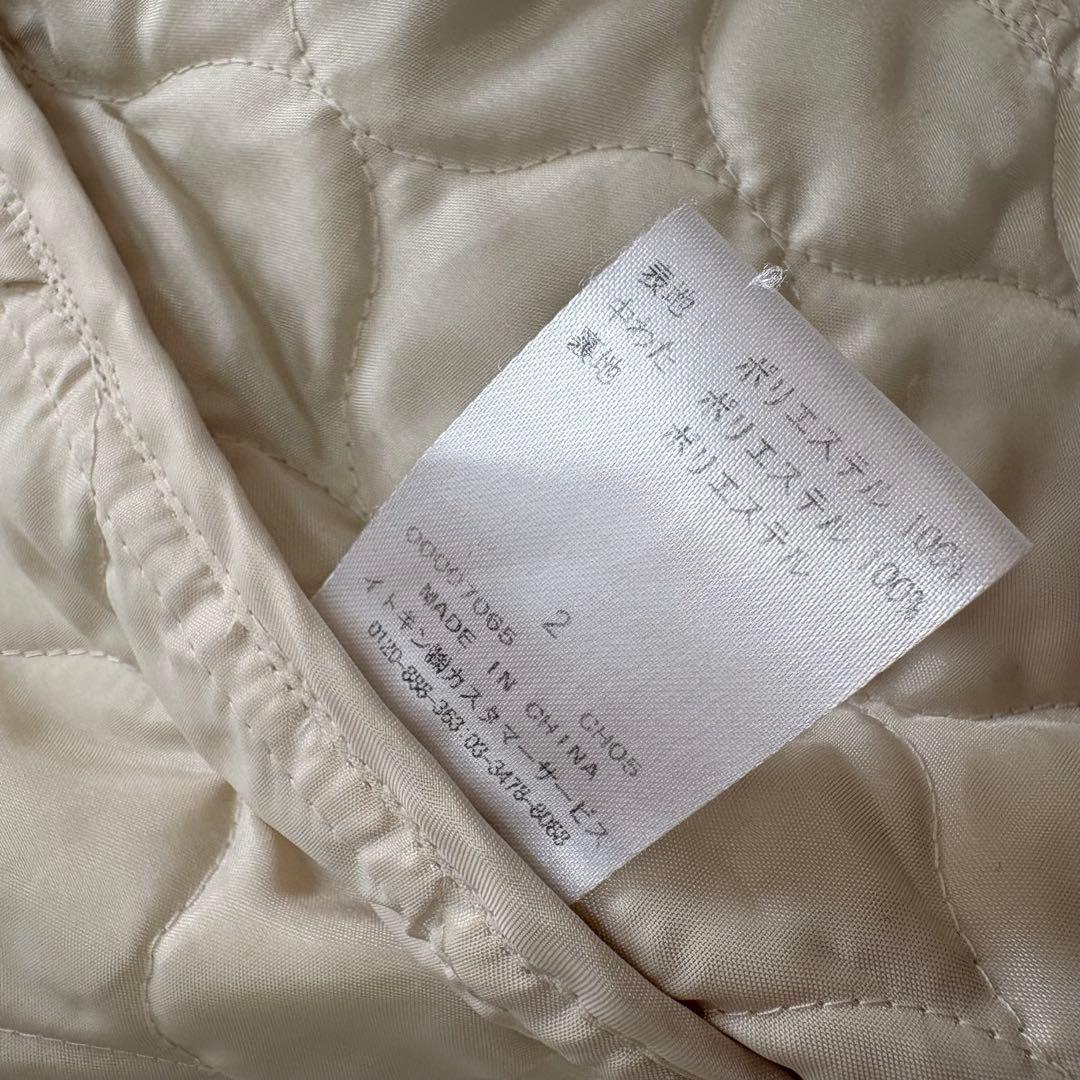 表地 ポリエステル 100%
中わた ポリエステル 100%
裏地 ポリエステル
2
00007065 CH05
MADE IN CHINA
イトキン㈱カスタマーサービス
0120-888-363 03-3478-8088